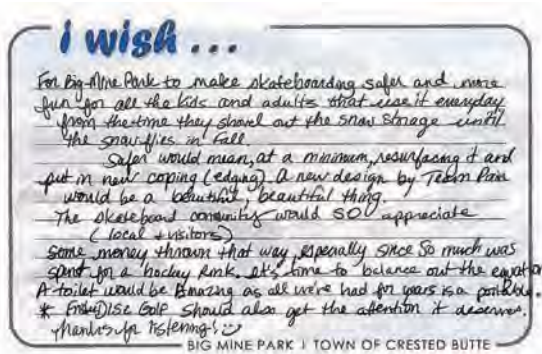 i wish ...
For Big Mine Park to make skateboarding safer and more
fun for all the kids and adults that use it everyday
from the time they shovel out the snow storage until
the snow flies in Fall.
Safer would mean, at a minimum, resurfacing it and
put in new coping (edging). A new design by Team Pain
would be a beautiful, beautiful thing.
The skateboard community would SO appreciate
(local + visitors)
some money thrown that way, especially since so much was
spent for a hockey rink, it's time to balance out the equation
A toilet would be Amazing as all we've had for years is a portapotty.
* DISC GOLF should also get the attention it deserves.
Thanks for listening!
BIG MINE PARK | TOWN OF CRESTED BUTTE